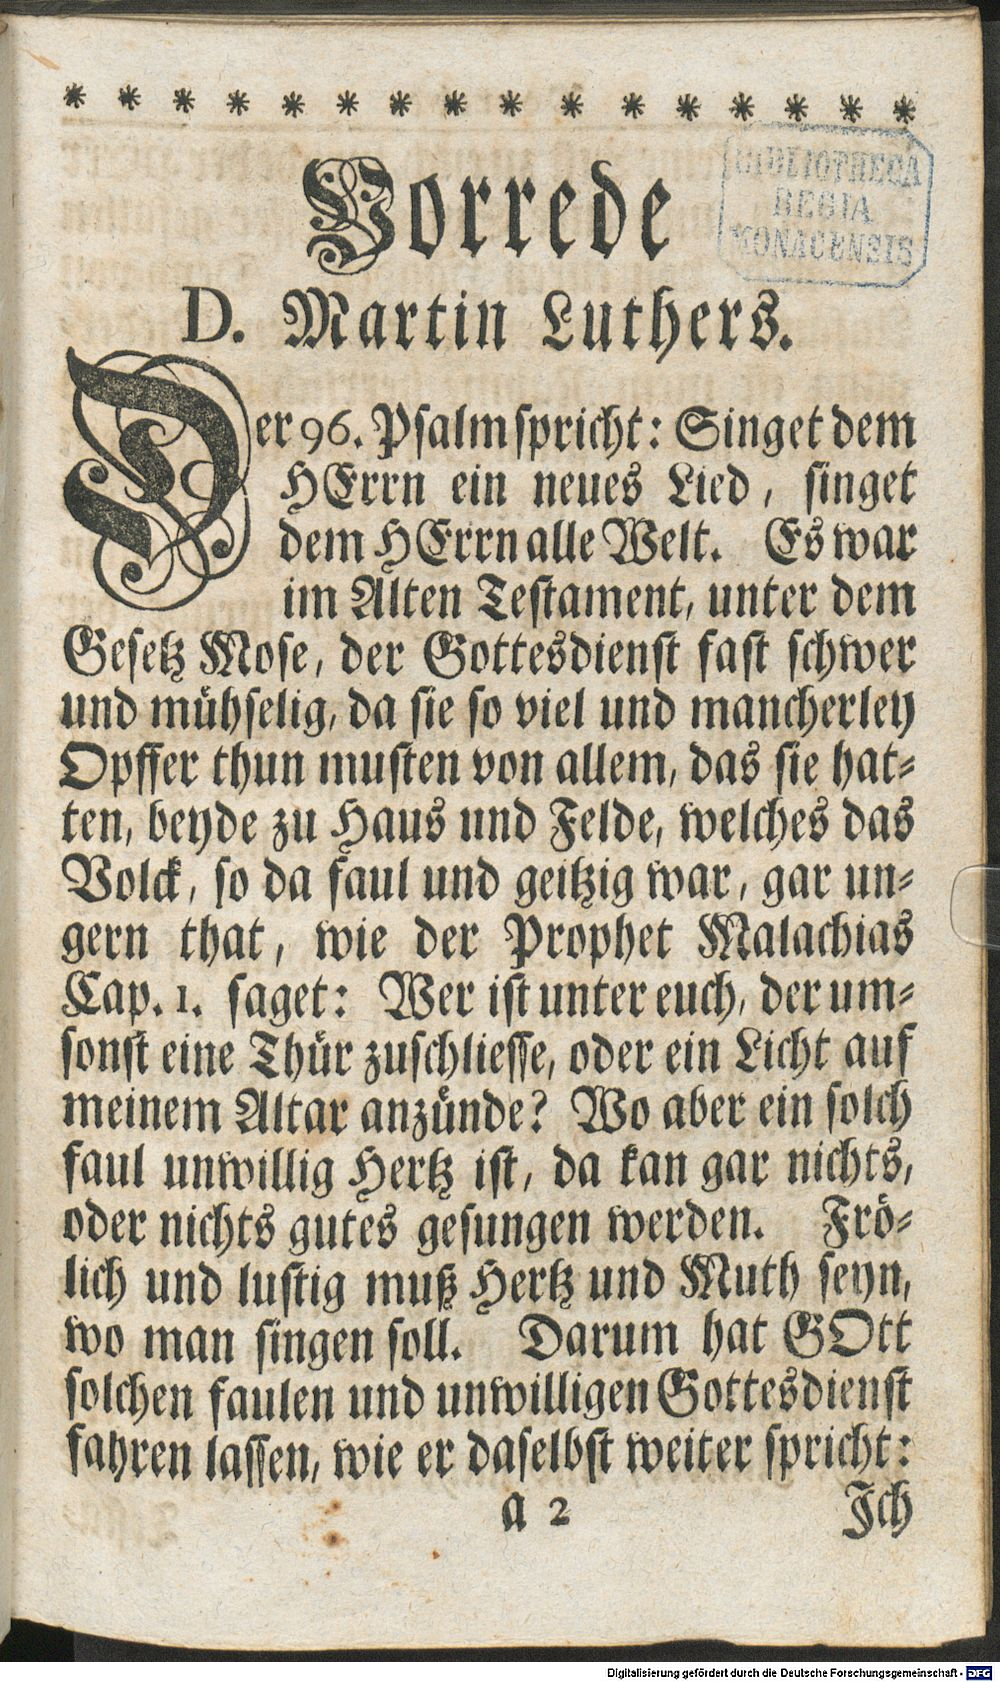 * * * * * * * * * * * * * * * *
BIBLIOTHECA
REGIA
MONACENSIS
Vorrede
D. Martin Luthers.
Der 96. Psalm spricht: Singet dem
HErrn ein neues Lied, singet
dem HErrn alle Welt. Es war
im Alten Testament, unter dem
Gesetz Mose, der Gottesdienst fast schwer
und mühselig, da sie so viel und mancherley
Opffer thun musten von allem, das sie hat-
ten, beyde zu Haus und Felde, welches das
Volck, so da faul und geitzig war, gar un-
gern that, wie der Prophet Malachias
Cap. 1. saget: Wer ist unter euch, der um-
sonst eine Thür zuschliesse, oder ein Licht auf
meinem Altar anzünde? Wo aber ein solch
faul unwillig Hertz ist, da kan gar nichts,
oder nichts gutes gesungen werden. Frö-
lich und lustig muß Hertz und Muth seyn,
wo man singen soll. Darum hat GOtt
solchen faulen und unwilligen Gottesdienst
fahren lassen, wie er daselbst weiter spricht:
a 2 Ich
Digitalisierung gefördert durch die Deutsche Forschungsgemeinschaft - DFG